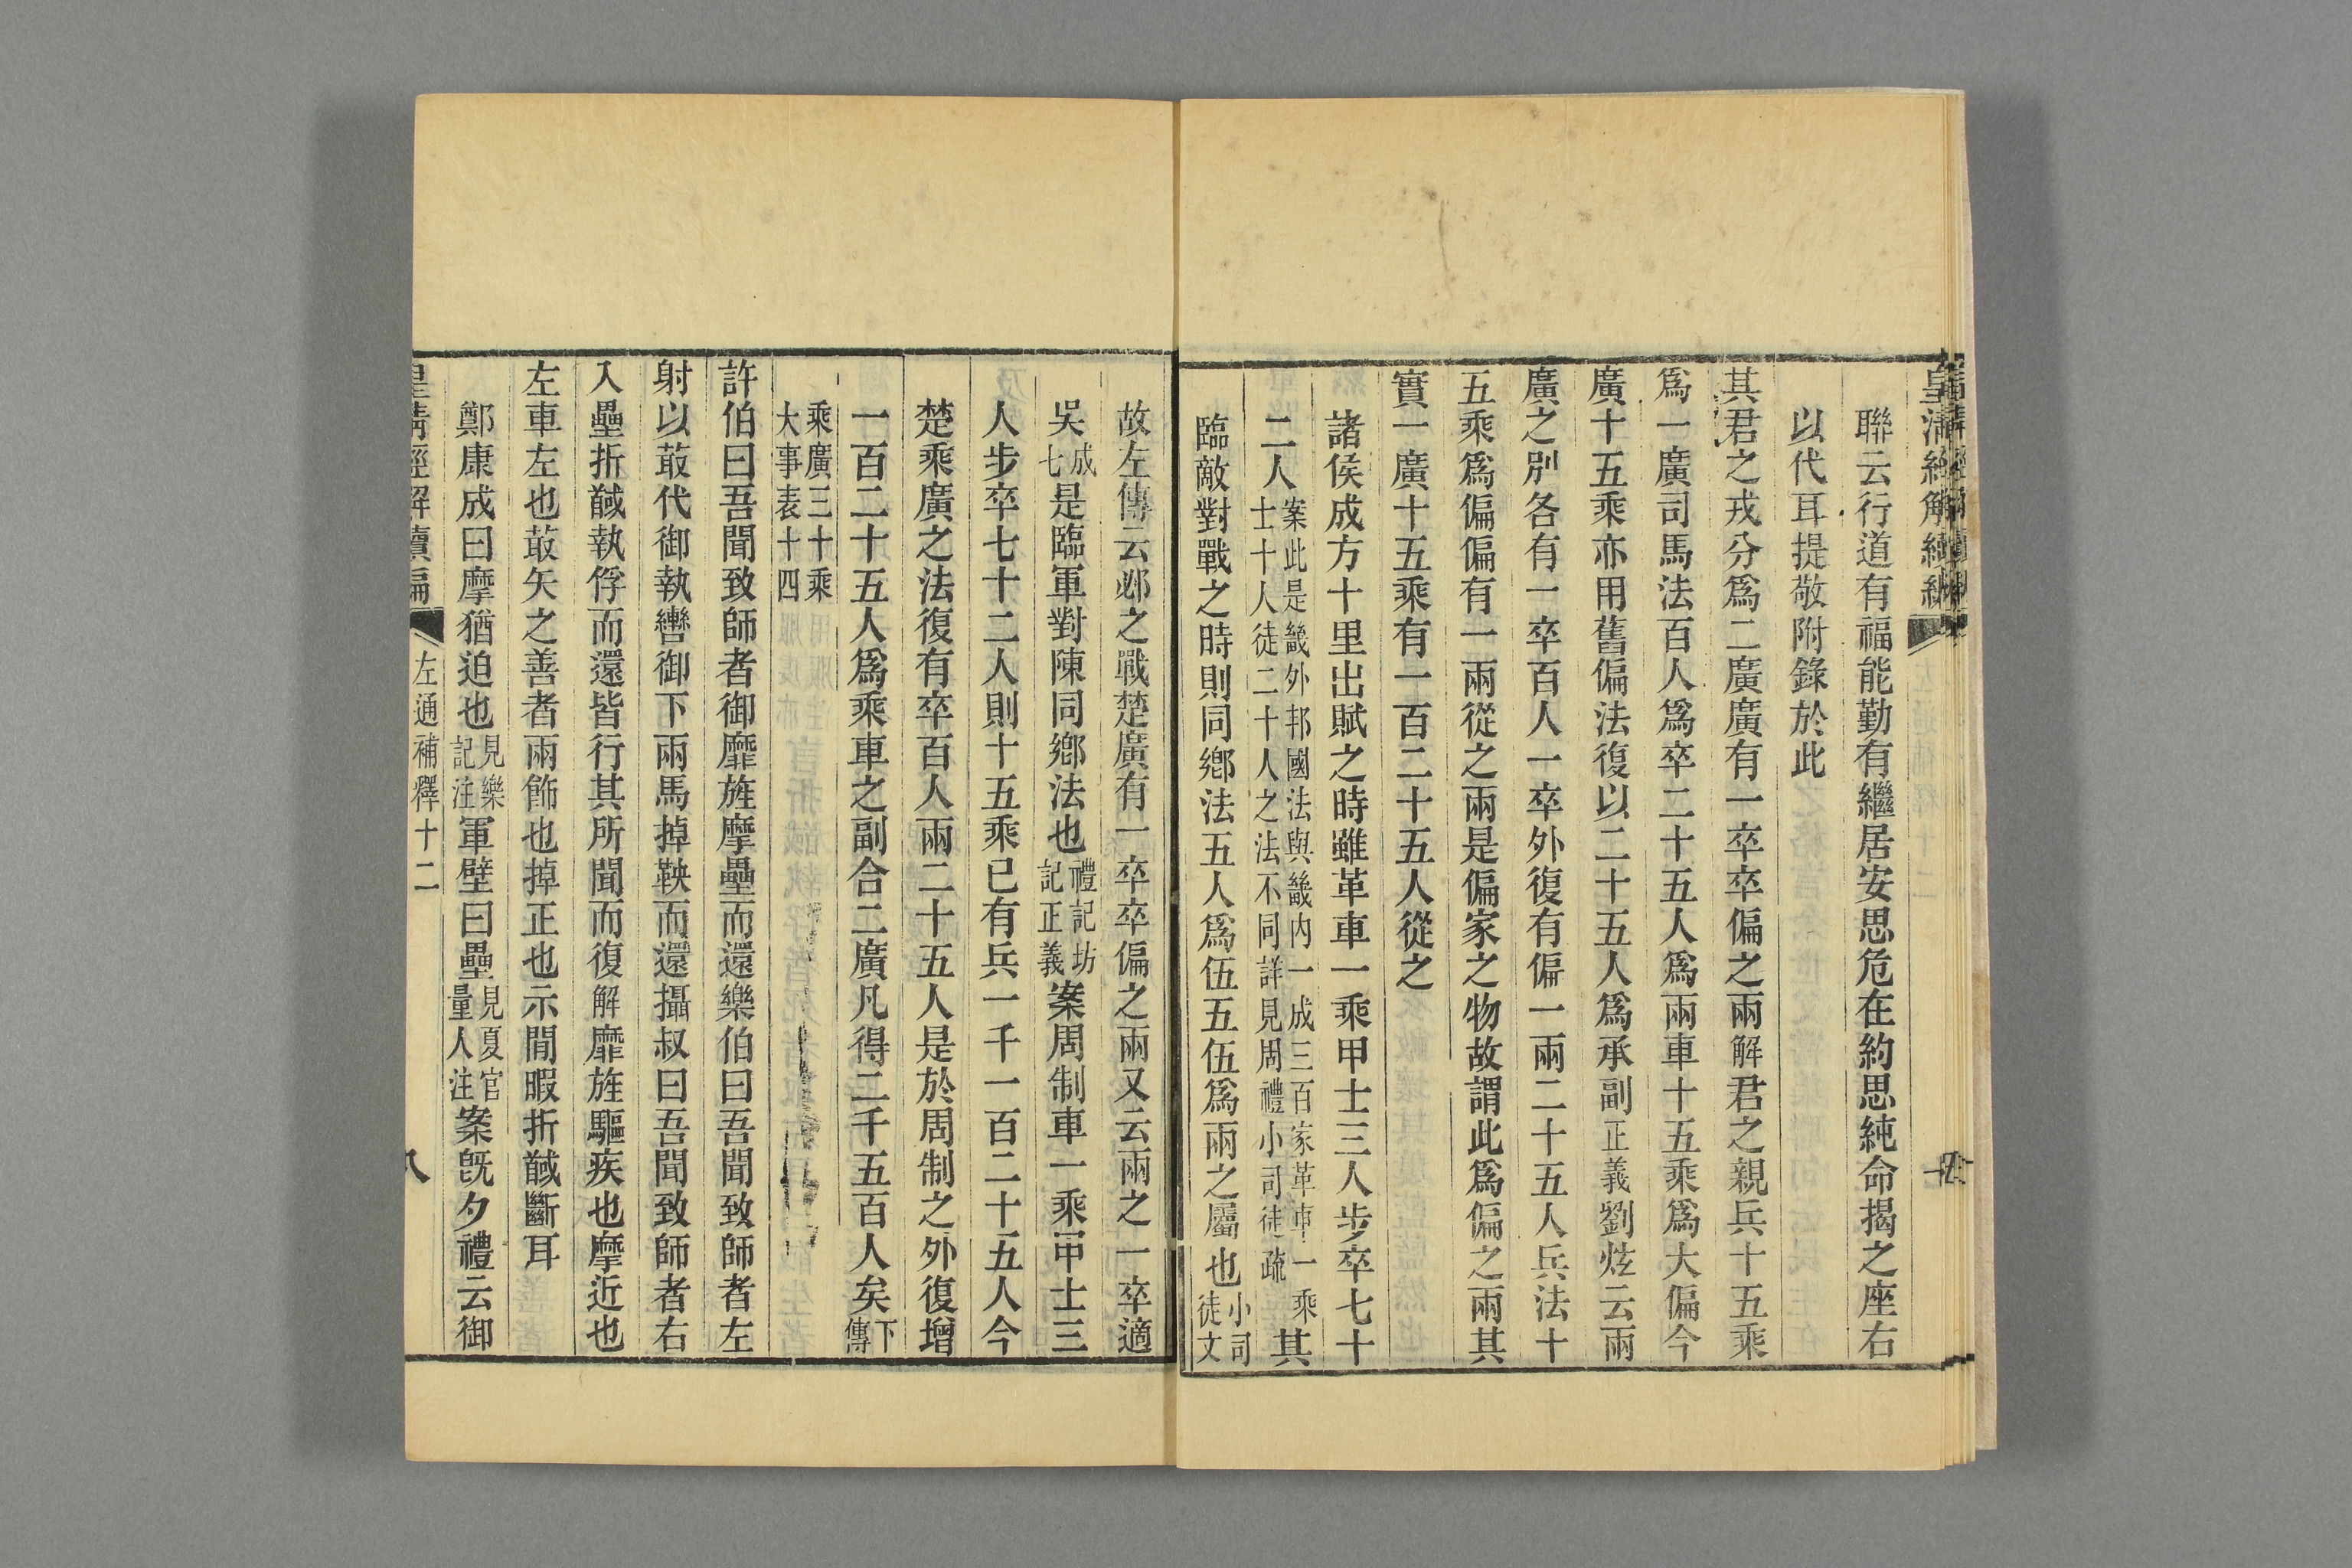 皇清經解續編
聯云行道有福能勤有繼居安思危在約思純命揭之座右
以代耳提敬附錄於此
其君之戎分爲二廣廣有一卒卒偏之兩解君之親兵十五乘
爲一廣司馬法百人爲卒二十五人爲兩車十五乘爲大偏今
廣十五乘亦用舊偏法復以二十五人爲承副正義劉炫云兩
廣之別各有一卒百人一卒外復有偏一兩二十五人兵法十
五乘爲偏偏有一兩從之兩是偏家之物故謂此爲偏之兩其
實一廣十五乘有一百二十五人從之
諸侯成方十里出賦之時雖革車一乘甲士三人步卒七十
二人案此是畿外邦國法與畿內一成三百家革車一乘士十人徒二十人之法不同詳見周禮小司徒疏其
臨敵對戰之時則同鄉法五人爲伍五伍爲兩之屬也小司徒文
故左傳云邲之戰楚廣有一卒卒偏之兩又云兩之一卒適
吳成七是臨軍對陳同鄉法也禮記坊記正義案周制車一乘甲士三
人步卒七十二人則十五乘已有兵一千一百二十五人今
楚乘廣之法復有卒百人兩二十五人是於周制之外復增
一百二十五人爲乘車之副合二廣凡得二千五百人矣下傳
乘廣三十乘大事表十四
許伯曰吾聞致師者御靡旌摩壘而還樂伯曰吾聞致師者左
射以菆代御執轡御下兩馬掉鞅而還攝叔曰吾聞致師者右
入壘折馘執俘而還皆行其所聞而復解靡旌驅疾也摩近也
左車左也菆矢之善者兩飾也掉正也示閒暇折馘斷耳
鄭康成曰摩猶迫也見樂記注軍壁曰壘見夏官量人注案旣夕禮云御
皇清經解續編 左通補釋十二 八